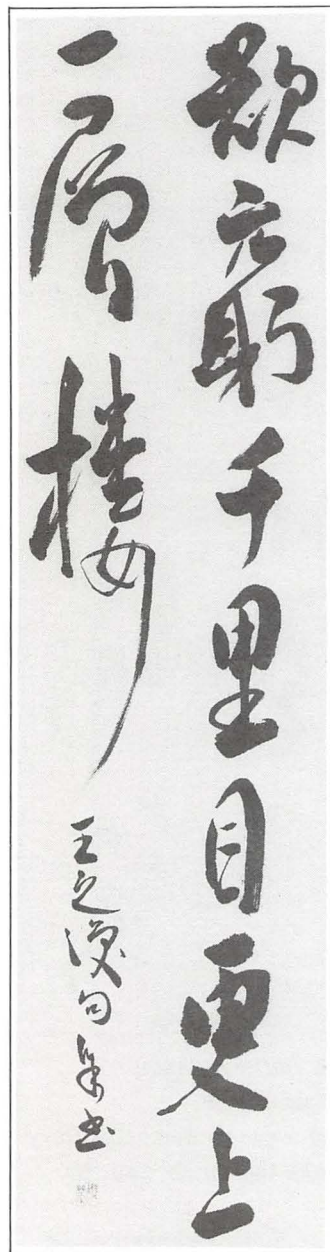 欲窮千里目更上
一層樓
王之渙句
書